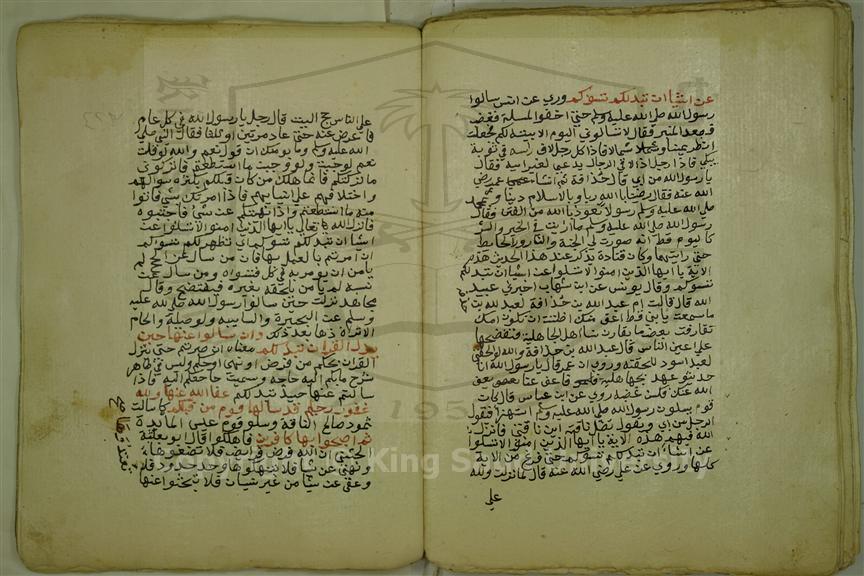 عن اشيا ان تبدلكم تسؤكم وروي عن انس سالوا
رسول الله صلى الله عليه وسلم حتى احفوا المسلة فغضب
فصعد المنبر فقال لا تسالوني اليوم الا بينته لكم فجعلت
انظر يمينا وشمالا فاذا كل رجل لاف راسه في ثوبه
يبكي فاذا رجل اذا لاحى الرجال يدعى لغير ابيه فقال
يا رسول الله من ابي قال حذافة ثم انشا عمر رضي
الله عنه فقال رضينا بالله ربا وبالاسلام دينا وبمحمد
صلى الله عليه وسلم رسولا نعوذ بالله من الفتن فقال
رسول الله صلى الله عليه وسلم ما رايت في الخير والشر
كاليوم قط انه صورت لي الجنة والنار ورا الحايط
حتى رايتهما وكان قتادة يذكر عند هذا الحديث هذه
الاية يا ايها الذين امنوا لا تسالوا عن اشيا ان تبد لكم
تسؤكم وقال يونس عن ابن شهاب اخبرني عبيد
الله قال قالت ام عبد الله بن حذافة لعبد الله بن
ما سمعت بابن قط اعق منك اظننت ان تكون امك
تقارفت بعض ما يقارف نسا اهل الجاهلية فتفضحها
على اعين الناس قال عبد الله بن حذافة والله لو الحقني
لعبد اسود للحقته وروي ان عمر قال يا رسول الله انا
حديثو عهد بجاهلية فاعف عنا يعفو
الله عنك فسكن غضبه روي عن ابن عباس قال كان
قوم يسلون رسول الله صلى الله عليه وسلم استهزا فيقول
الرجل من ابي ويقول تضل ناقته اين ناقتي فانزل
الله فيهم هذه الاية يا ايها الذين امنوا لا تسئلوا
عن اشيا ان تبد لكم تسؤكم حتى فرغ من الاية
كلها وروي عن علي رضي الله عنه قال لما نزلت ولله
على
على الناس حج البيت قال رجل يا رسول الله في كل عام
فاعرض عنه حتى عاد مرتين او ثلثا فقال النبي صلى
الله عليه وسلم وما يومنك ان اقول نعم والله لو قلت
نعم لوجبت ولو وجبت ما استطعتم فاتركوني
ما تركتكم فانما هلك من كان قبلكم بكثرة سوالهم
واختلافهم على انبيايهم فاذا امرتكم بشي فاتوا
منه ما استطعتم واذا نهيتكم عن شي فاجتنبوه
فانزل الله تعالى يا ايها الذين امنوا لا تسئلوا عن
اشيا ان تبد لكم تسؤكم اي تظهر لكم تسؤكم
ان امرتم بالعمل بها فان من سال عن الحج لم
يامن ان يومر به في كل عام فيسوه ومن سال عن
نسبه لم يامن ان يلحقه بغيره فيفتضح وقال
مجاهد نزلت حين سالوا رسول الله صلى الله عليه
وسلم عن البحيرة والسايبة والوصيلة والحام
الا تراه ذكرها بعد ذلك وان تسالوا عنها حين
ينزل القران تبد لكم معناه ان صبرتم حتى ينزل
القران بحكم من فرض او نهي او حكم وليس في ظاهره
شرح ما بكم اليه حاجة ومست حاجتكم اليه فاذا
سالتم عنها حينئذ تبد لكم عفا الله عنها والله
غفور حليم قد سالها قوم من قبلكم كما سالت
ثمود صالح الناقة وسال قوم عيسى المايدة
ثم اصبحوا بها كافرين فاهلكوا قال ابو ثعلبة
الخشني ان الله فرض فرايض فلا تضيعوها
ونهى عن اشيا فلا تنتهكوها وحد حدودا فلا
وعفى عن اشيا من غير نسيان فلا تبحثوا عنها
تعتدوها صح
King Saud University
195